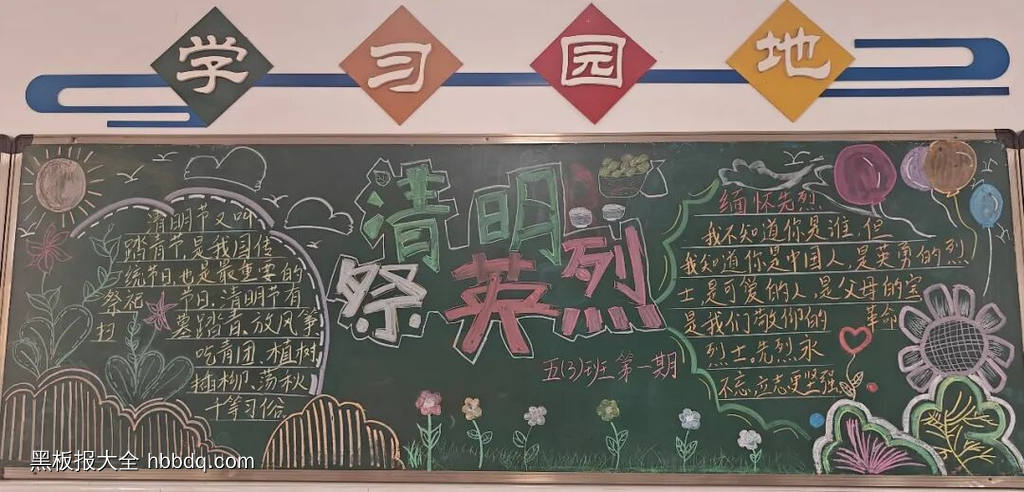 学习园地
清明祭英烈
五(3)班第一期
清明节又叫
踏青节,是我国传
统节日也是最重要的
祭祀 节日,清明节有
扫墓踏青、放风筝
吃青团、植树
插柳、荡秋
千等习俗
缅怀先烈
我不知道你是谁,但
我知道你是中国人,是英勇的烈
士,是可爱的人,是父母的宝
是我们敬仰的 革命
烈士。先烈永
不忘,立志更坚强
黑板报大全 hbbdq.com